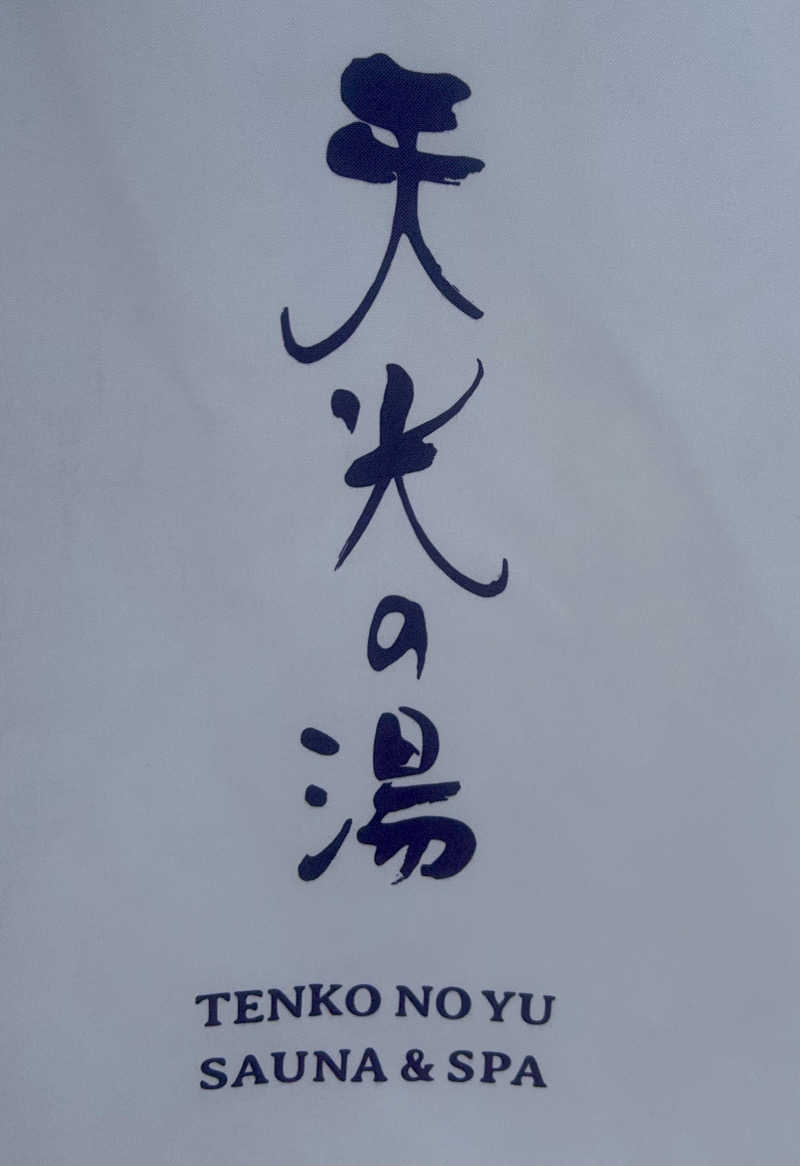 天光の湯
TENKO NO YU
SAUNA & SPA